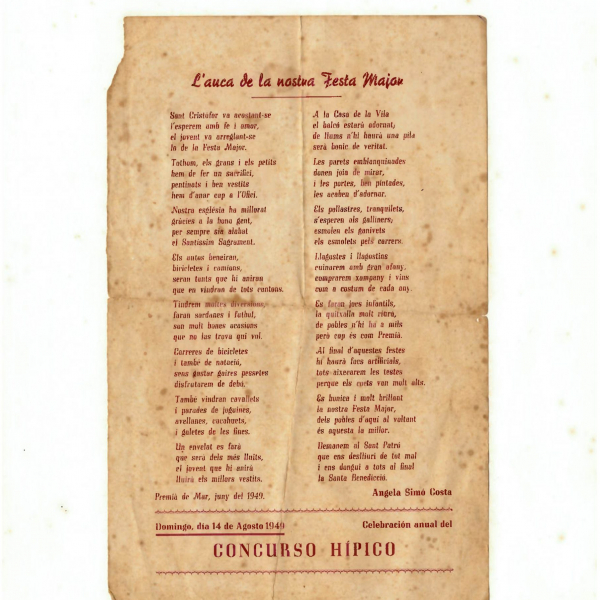 L'auca de la nostra Festa Major
Sant Cristòfor va acostant-se
l'esperem amb fe i amor,
el jovent va arreglant-se
la de la Festa Major.
Tothom, els grans i els petits
hem de fer un sacrifici,
pentinats i ben vestits
hem d'anar cap a l'Ofici.
Nostra església ha millorat
gràcies a la bona gent,
per sempre sia alabat
el Santíssim Sagrament.
Els autos beneiran,
bicicletes i camions,
seran tants que hi aniran
que en vindran de tots cantons.
Tindrem moltes diversions,
faran sardanes i futbol,
son molt bones ocasions
que no las trova qui vol.
Carreres de bicicletes
i també de natació,
sens gastar gaires pessetes
disfrutarem de debò.
També vindran cavallets
i parades de joguines,
avellanes, cacahuets,
i galetes de les fines.
Un envelat es farà
que serà dels més lluïts,
el jovent que hi anirà
lluirà els millors vestits.
Premià de Mar, juny del 1949.
A la Casa de la Vila
el balcó estarà adornat,
de llums n'hi haurà una pila
serà bonic de veritat.
Les parets emblanquinades
donen joia de mirar,
i les portes, ben pintades,
les acaben d'adornar.
Els pollastres, tranquilets,
s'esperen als galliners,
esmolen els ganivets
els esmolets pels carrers.
Llagostes i llagostins
cuinarem amb gran afany,
comprarem xampany i vins
com a costum de cada any.
Es faran jocs infantils,
la quitxalla molt riurà,
de pobles n'hi ha a mils
però cap és com Premià.
Al final d'aquestes festes
hi haurà focs artificials,
tots aixecarem les testes
perque els cuets van molt alts.
Es bonica i molt brillant
la nostra Festa Major,
dels pobles d'aquí al voltant
és aquesta la millor.
Demanem al Sant Patró
que ens deslliuri de tot mal
i ens dongui a tots al final
la Santa Benedicció.
Angela Simó Costa
Domingo, día 14 de Agosto 1949
Celebración anual del
CONCURSO HÍPICO